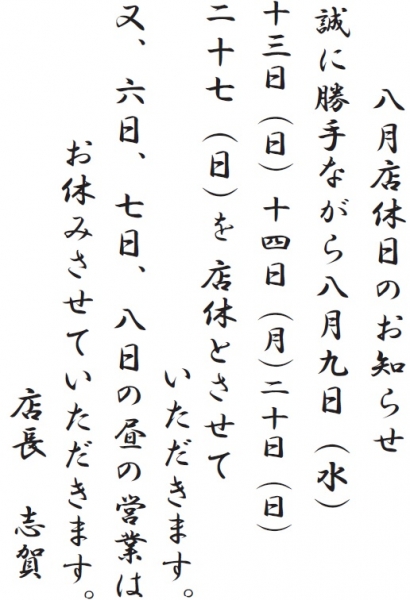 八月店休日のお知らせ
誠に勝手ながら八月九日（水）
十三日（日）十四日（月）二十日（日）
二十七（日）を店休とさせて
いただきます。
又、六日、七日、八日の昼の営業は
お休みさせていただきます。
店長 志賀